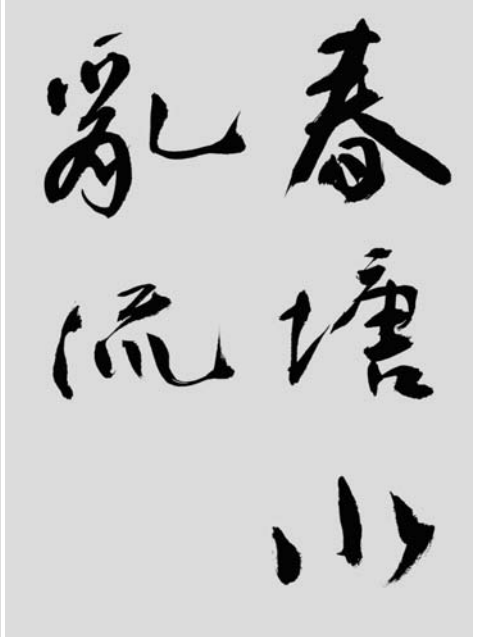 春塘水
亂流